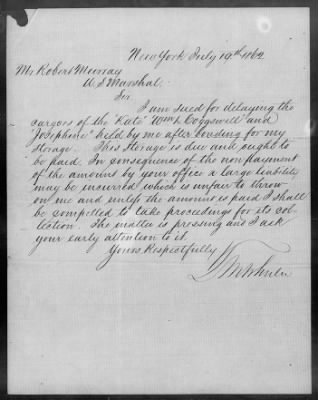 New York July 19th 1862
Mr Robert Murray
U. S. Marshal.
Sir
I am sued for delaying the
cargoes of the "Kate" "Wm L Coggswell" and
"Josephine" held by me after bonding for my
storage. This storage is due and ought to
be paid. In consequence of the non payment
of the amounts by your office a large liability
may be incurred which is unfair to throw
on me and unless the amount is paid I shall
be compelled to take proceedings for its col-
lection. The matter is pressing and I ask
your early attention to it.
Yours Respectfully